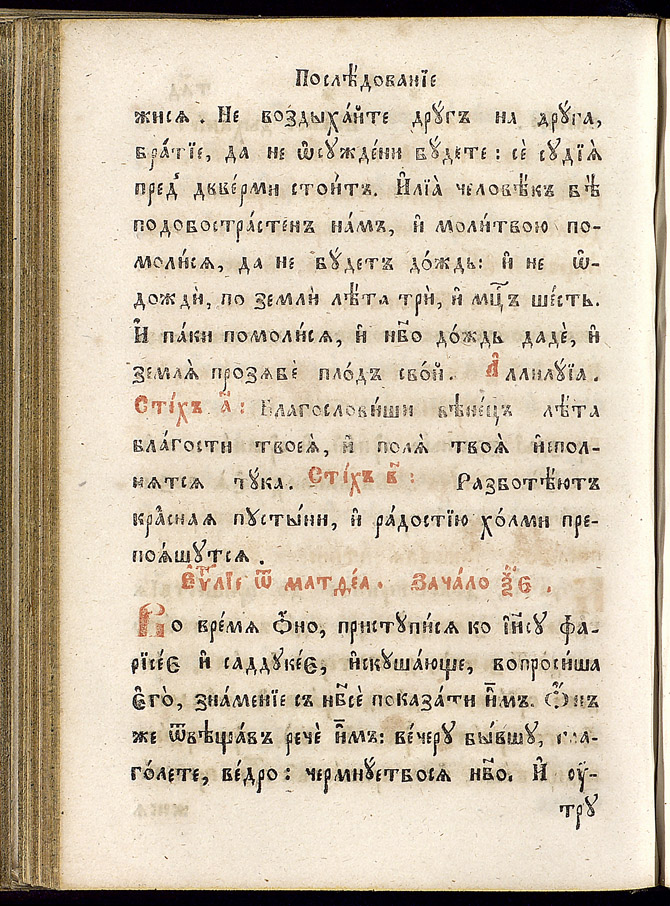 Послѣ́дованїе
жисѧ . Не воздыха́йте дрꙋ́гъ на дрꙋ́га,
бра́тїе, да не ѡ҆сꙋжде́ни бꙋ́дете : сѐ сꙋдїѧ̀
пред̾ две́рми стои́тъ. И҆лїа̀ человѣ́къ бѣ̀
подобостра́стенъ на́мъ, и҆ моли́твою по-
моли́сѧ, да не бꙋ́детъ до́ждь: и҆ не ѡ҆-
дождѝ, по землѝ лѣ́та трѝ, и҆ мц҃ъ ше́сть.
И҆ па́ки помоли́сѧ, и҆ нб҃о до́ждь дадѐ, и҆
землѧ̀ прозѧбѐ пло́дъ сво́й. А҆ллилꙋ́їа .
Сті́хъ а҃ : Благослови́ши вѣне́цъ лѣ́та
бла́гости твоеѧ̀, и҆ полѧ̀ твоѧ̀ и҆спол-
нѧтсѧ тꙋ́ка. Сті́хъ в҃ : Разботѣ́ютъ
кра́снаѧ пꙋсты́ни, и҆ ра́достїю хо́лми пре-
поѧ́шꙋтсѧ .
Е҆ѵⷢ҇лїе ѿ матѳе́а . Зача́ло ѯ҃є .
Во вре́мѧ ѻ҆́но, пристꙋпи́сѧ ко і҆и҃сꙋ фа-
рїсе́є и҆ саддꙋке́є, и҆скꙋша́юще, вопроси́ша
є҆го̀, зна́менїе съ нб҃сѐ показа́ти и҆̀мъ. Ѻ҆́нъ
же ѿвѣща́въ речѐ и҆̀мъ: ве́черꙋ бы́вшꙋ, гла-
го́лете, ве́дро : чермнꙋ́етбосѧ нб҃о. И҆ оу҆-
трꙋ